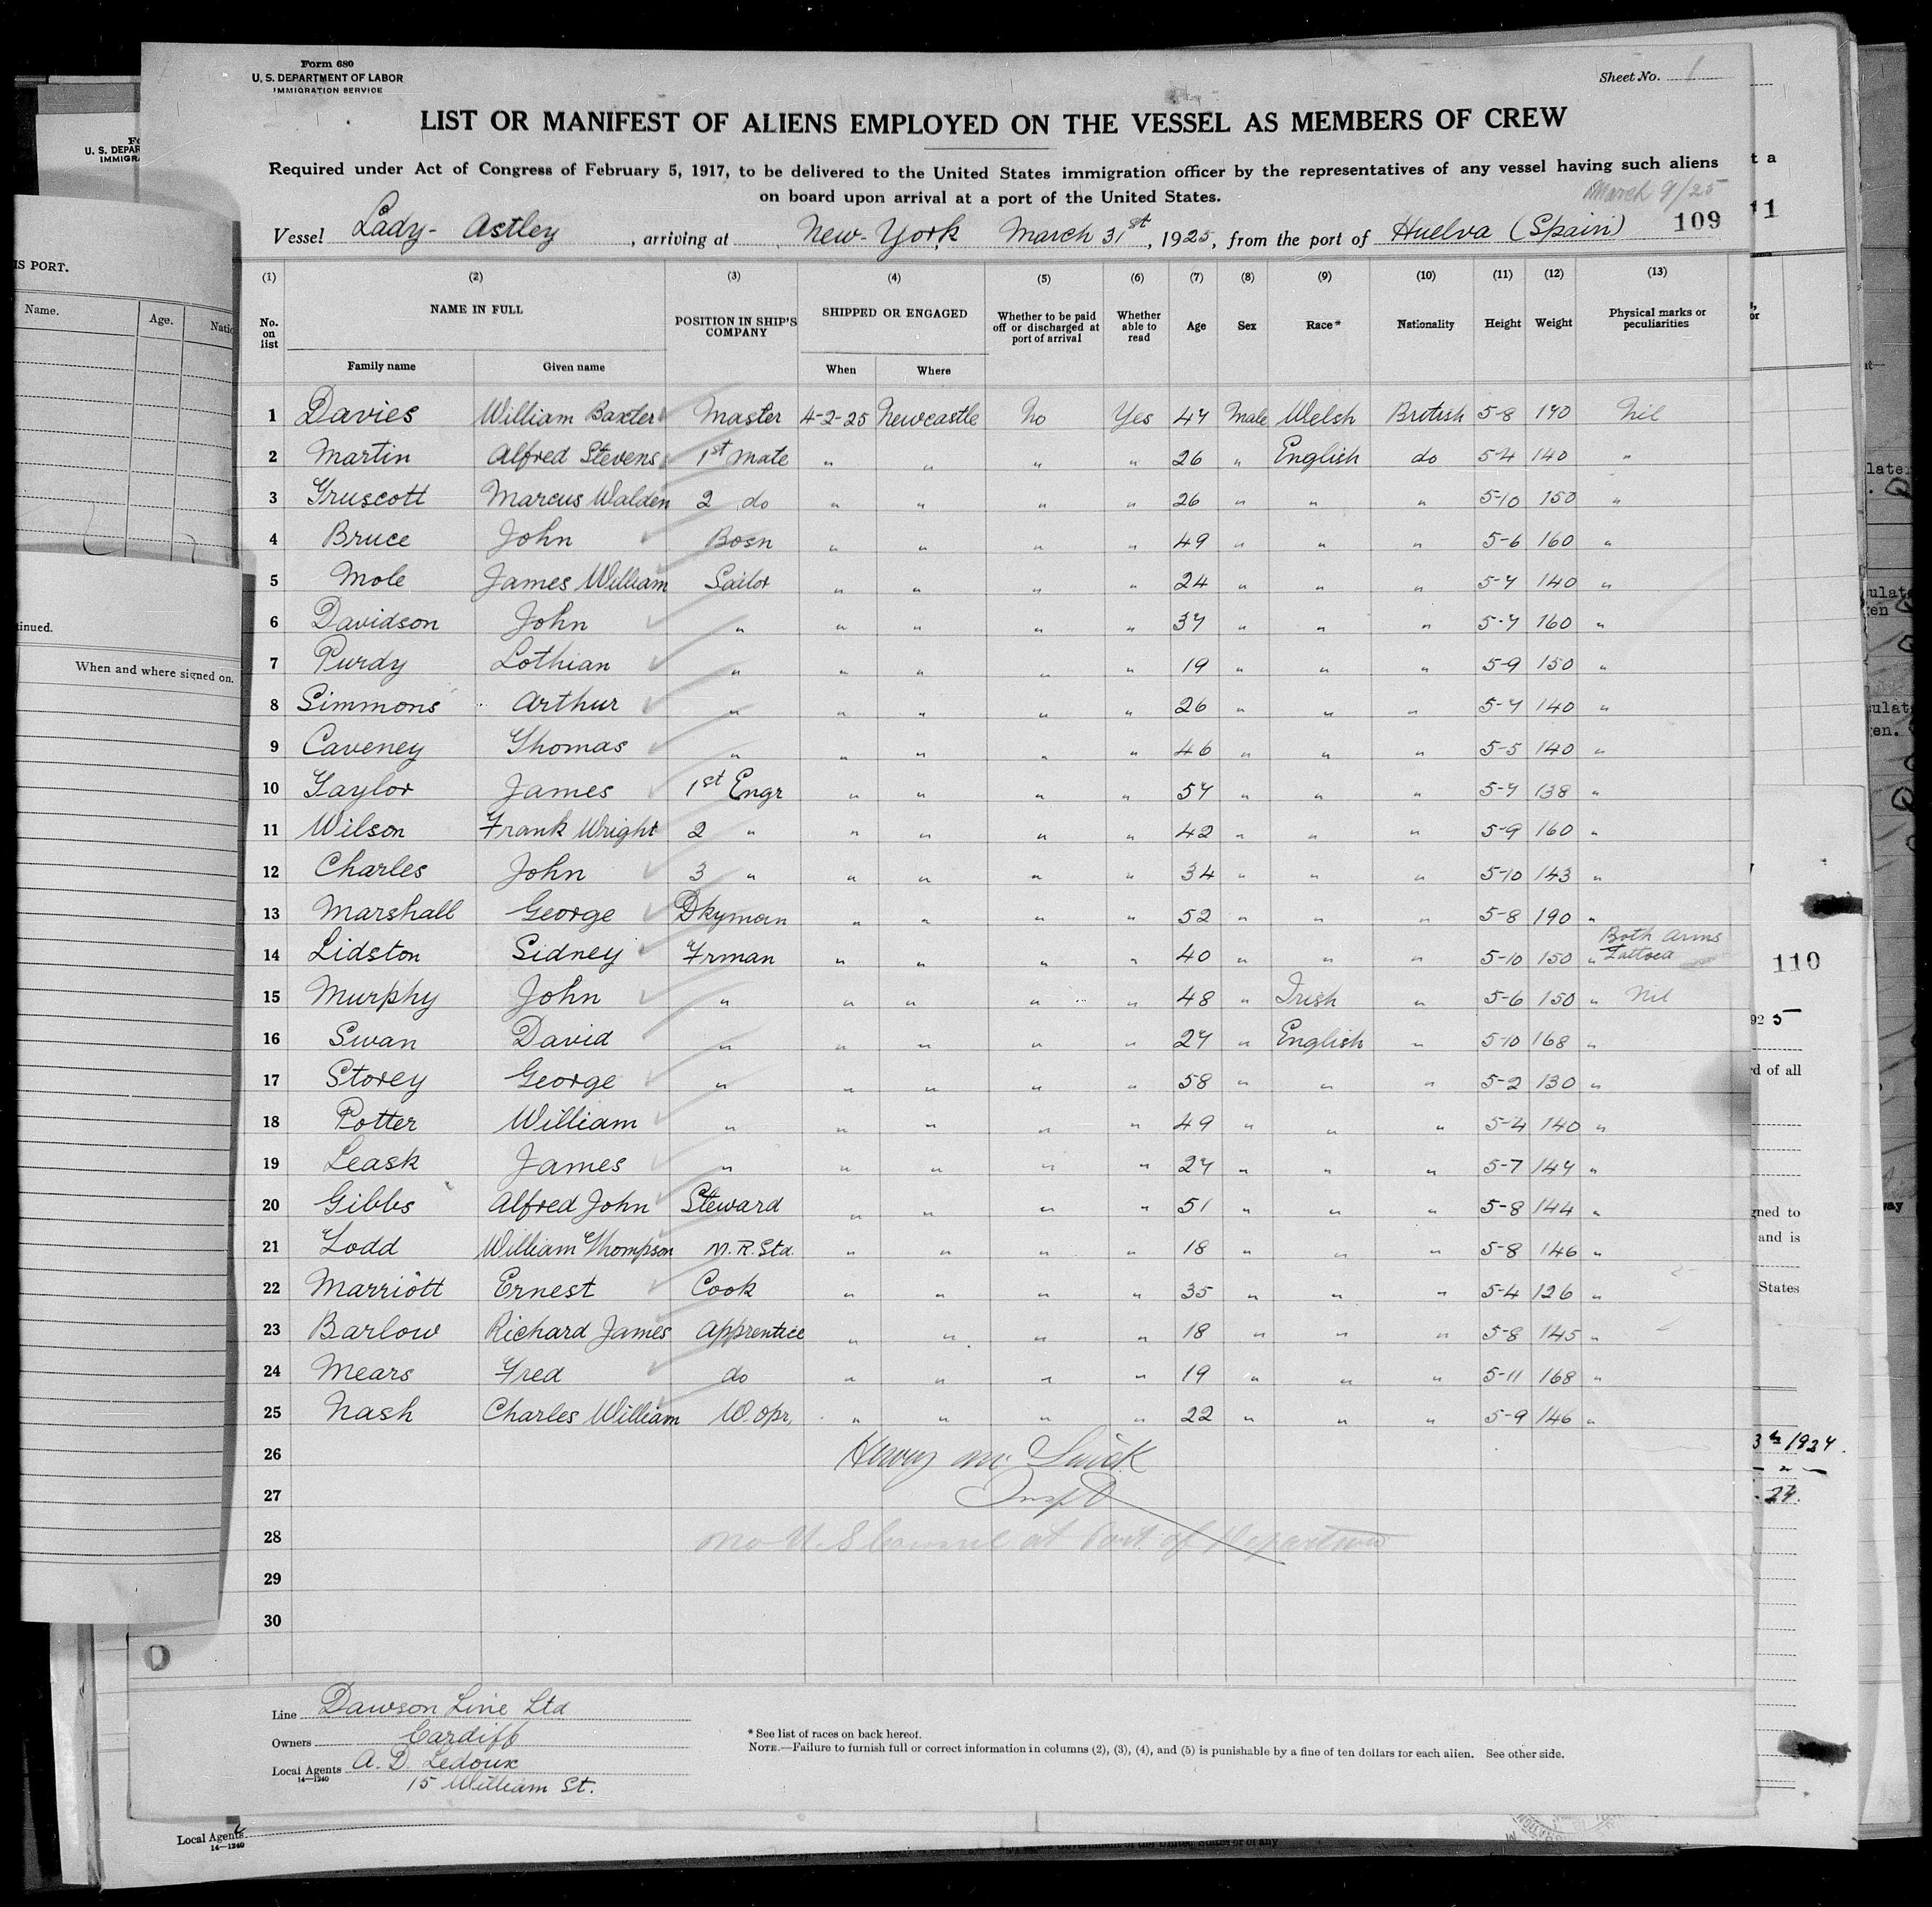 Form 680
U. S. DEPARTMENT OF LABOR
IMMIGRATION SERVICE
Sheet No. 1
LIST OR MANIFEST OF ALIENS EMPLOYED ON THE VESSEL AS MEMBERS OF CREW
Required under Act of Congress of February 5, 1917, to be delivered to the United States immigration officer by the representatives of any vessel having such aliens
on board upon arrival at a port of the United States.
March 9/25
Vessel Lady- Astley, arriving at New-York March 31st, 1925, from the port of Huelva (Spain) 109
(1) (2) (3) (4) (5) (6) (7) (8) (9) (10) (11) (12) (13)
No. on list NAME IN FULL POSITION IN SHIP'S COMPANY SHIPPED OR ENGAGED Whether to be paid off or discharged at port of arrival Whether able to read Age Sex Race* Nationality Height Weight Physical marks or peculiarities
Family name Given name When Where
1 Davies William Baxter Master 4-2-25 Newcastle No Yes 47 Male Welsh British 5-8 190 Nil
2 Martin Alfred Stevens 1st Mate " " " " 26 " English do 5-4 140 "
3 Truscott Marcus Walden 2 do " " " " 26 " " " 5-10 150 "
4 Bruce John Bosn " " " " 49 " " " 5-6 160 "
5 Mole James William Sailor " " " " 24 " " " 5-7 140 "
6 Davidson John " " " " " 37 " " " 5-7 160 "
7 Purdy Lothian " " " " " 19 " " " 5-9 150 "
8 Simmons Arthur " " " " " 26 " " " 5-7 140 "
9 Caveney Thomas " " " " " 46 " " " 5-5 140 "
10 Taylor James 1st Engr " " " " 57 " " " 5-7 138 "
11 Wilson Frank Wright 2 " " " " " 42 " " " 5-9 160 "
12 Charles John 3 " " " " " 34 " " " 5-10 143 "
13 Marshall George Dkyman " " " " 52 " " " 5-8 190 "
14 Lidston Sidney Frman " " " " 40 " " " 5-10 150 " Both Arms Tattoed
15 Murphy John " " " " " 48 " Irish " 5-6 150 " Nil
16 Swan David " " " " " 27 " English " 5-10 168 "
17 Storey George " " " " " 58 " " " 5-2 130 "
18 Potter William " " " " " 49 " " " 5-4 140 "
19 Leask James " " " " " 27 " " " 5-7 147 "
20 Gibbs Alfred John Steward " " " " 51 " " " 5-8 144 "
21 Todd William Thompson M.R.Std. " " " " 18 " " " 5-8 146 "
22 Marriott Ernest Cook " " " " 35 " " " 5-4 126 "
23 Barlow Richard James Apprentice " " " " 18 " " " 5-8 145 "
24 Mears Fred do " " " " 19 " " " 5-11 168 "
25 Nash Charles William W. Opr. " " " " 22 " " " 5-9 146 "
26 Henry Mc
27 Insp
28 No U S Consul at Port of Departure
29
30
Line Dawson Line Ltd
Owners Cardiff
Local Agents A. D. Ledoux
14—1240
15 William St.
* See list of races on back hereof.
NOTE.—Failure to furnish full or correct information in columns (2), (3), (4), and (5) is punishable by a fine of ten dollars for each alien. See other side.
U. S. DEPAR
IMMIGRA
IS PORT.
Name. Age. Natio
tinued.
When and where signed on.
Local Agents
14—1240
t a
11
110
92 5
rd of all
gned to
and is
States
1924.
24.